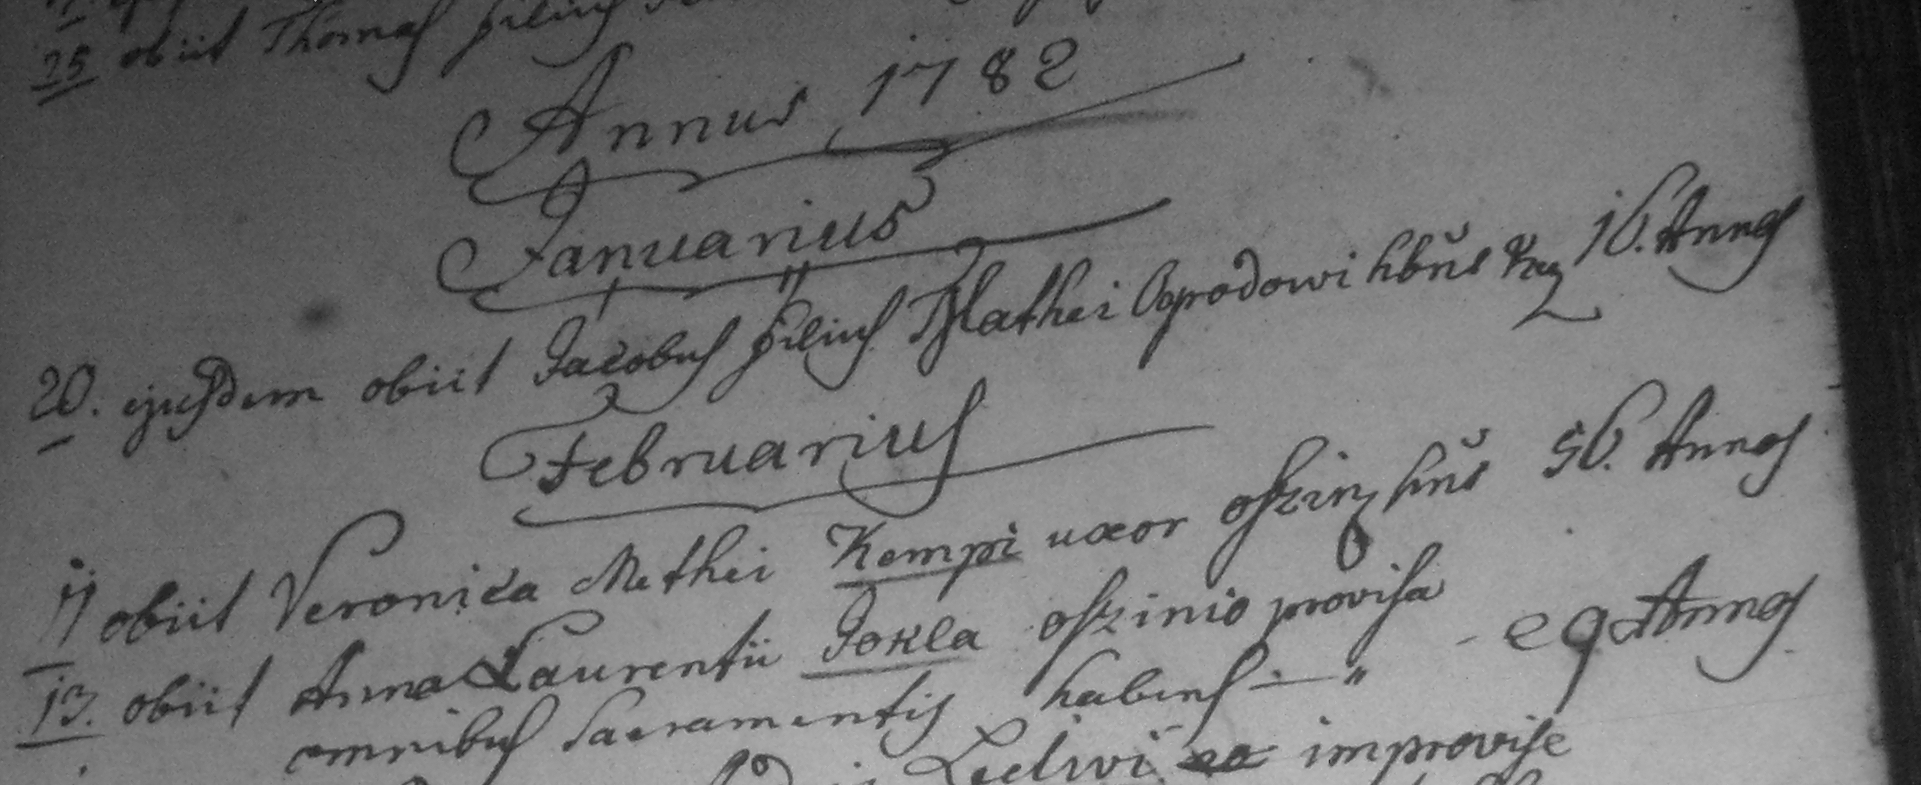 25 obiit Thomas filius
Annus 1782
Januarius
20. ejusdem obiit Jacobus filius Mathei Ogrodowi hbns 16. Annos
Februarius
11 obiit Veronica Methei Kempi uxor hns 56. Annos
13. obiit Anna Laurentii Jokla provisa
omnibus Sacramentis habens — " - 29 Annos
Ledwi improvise